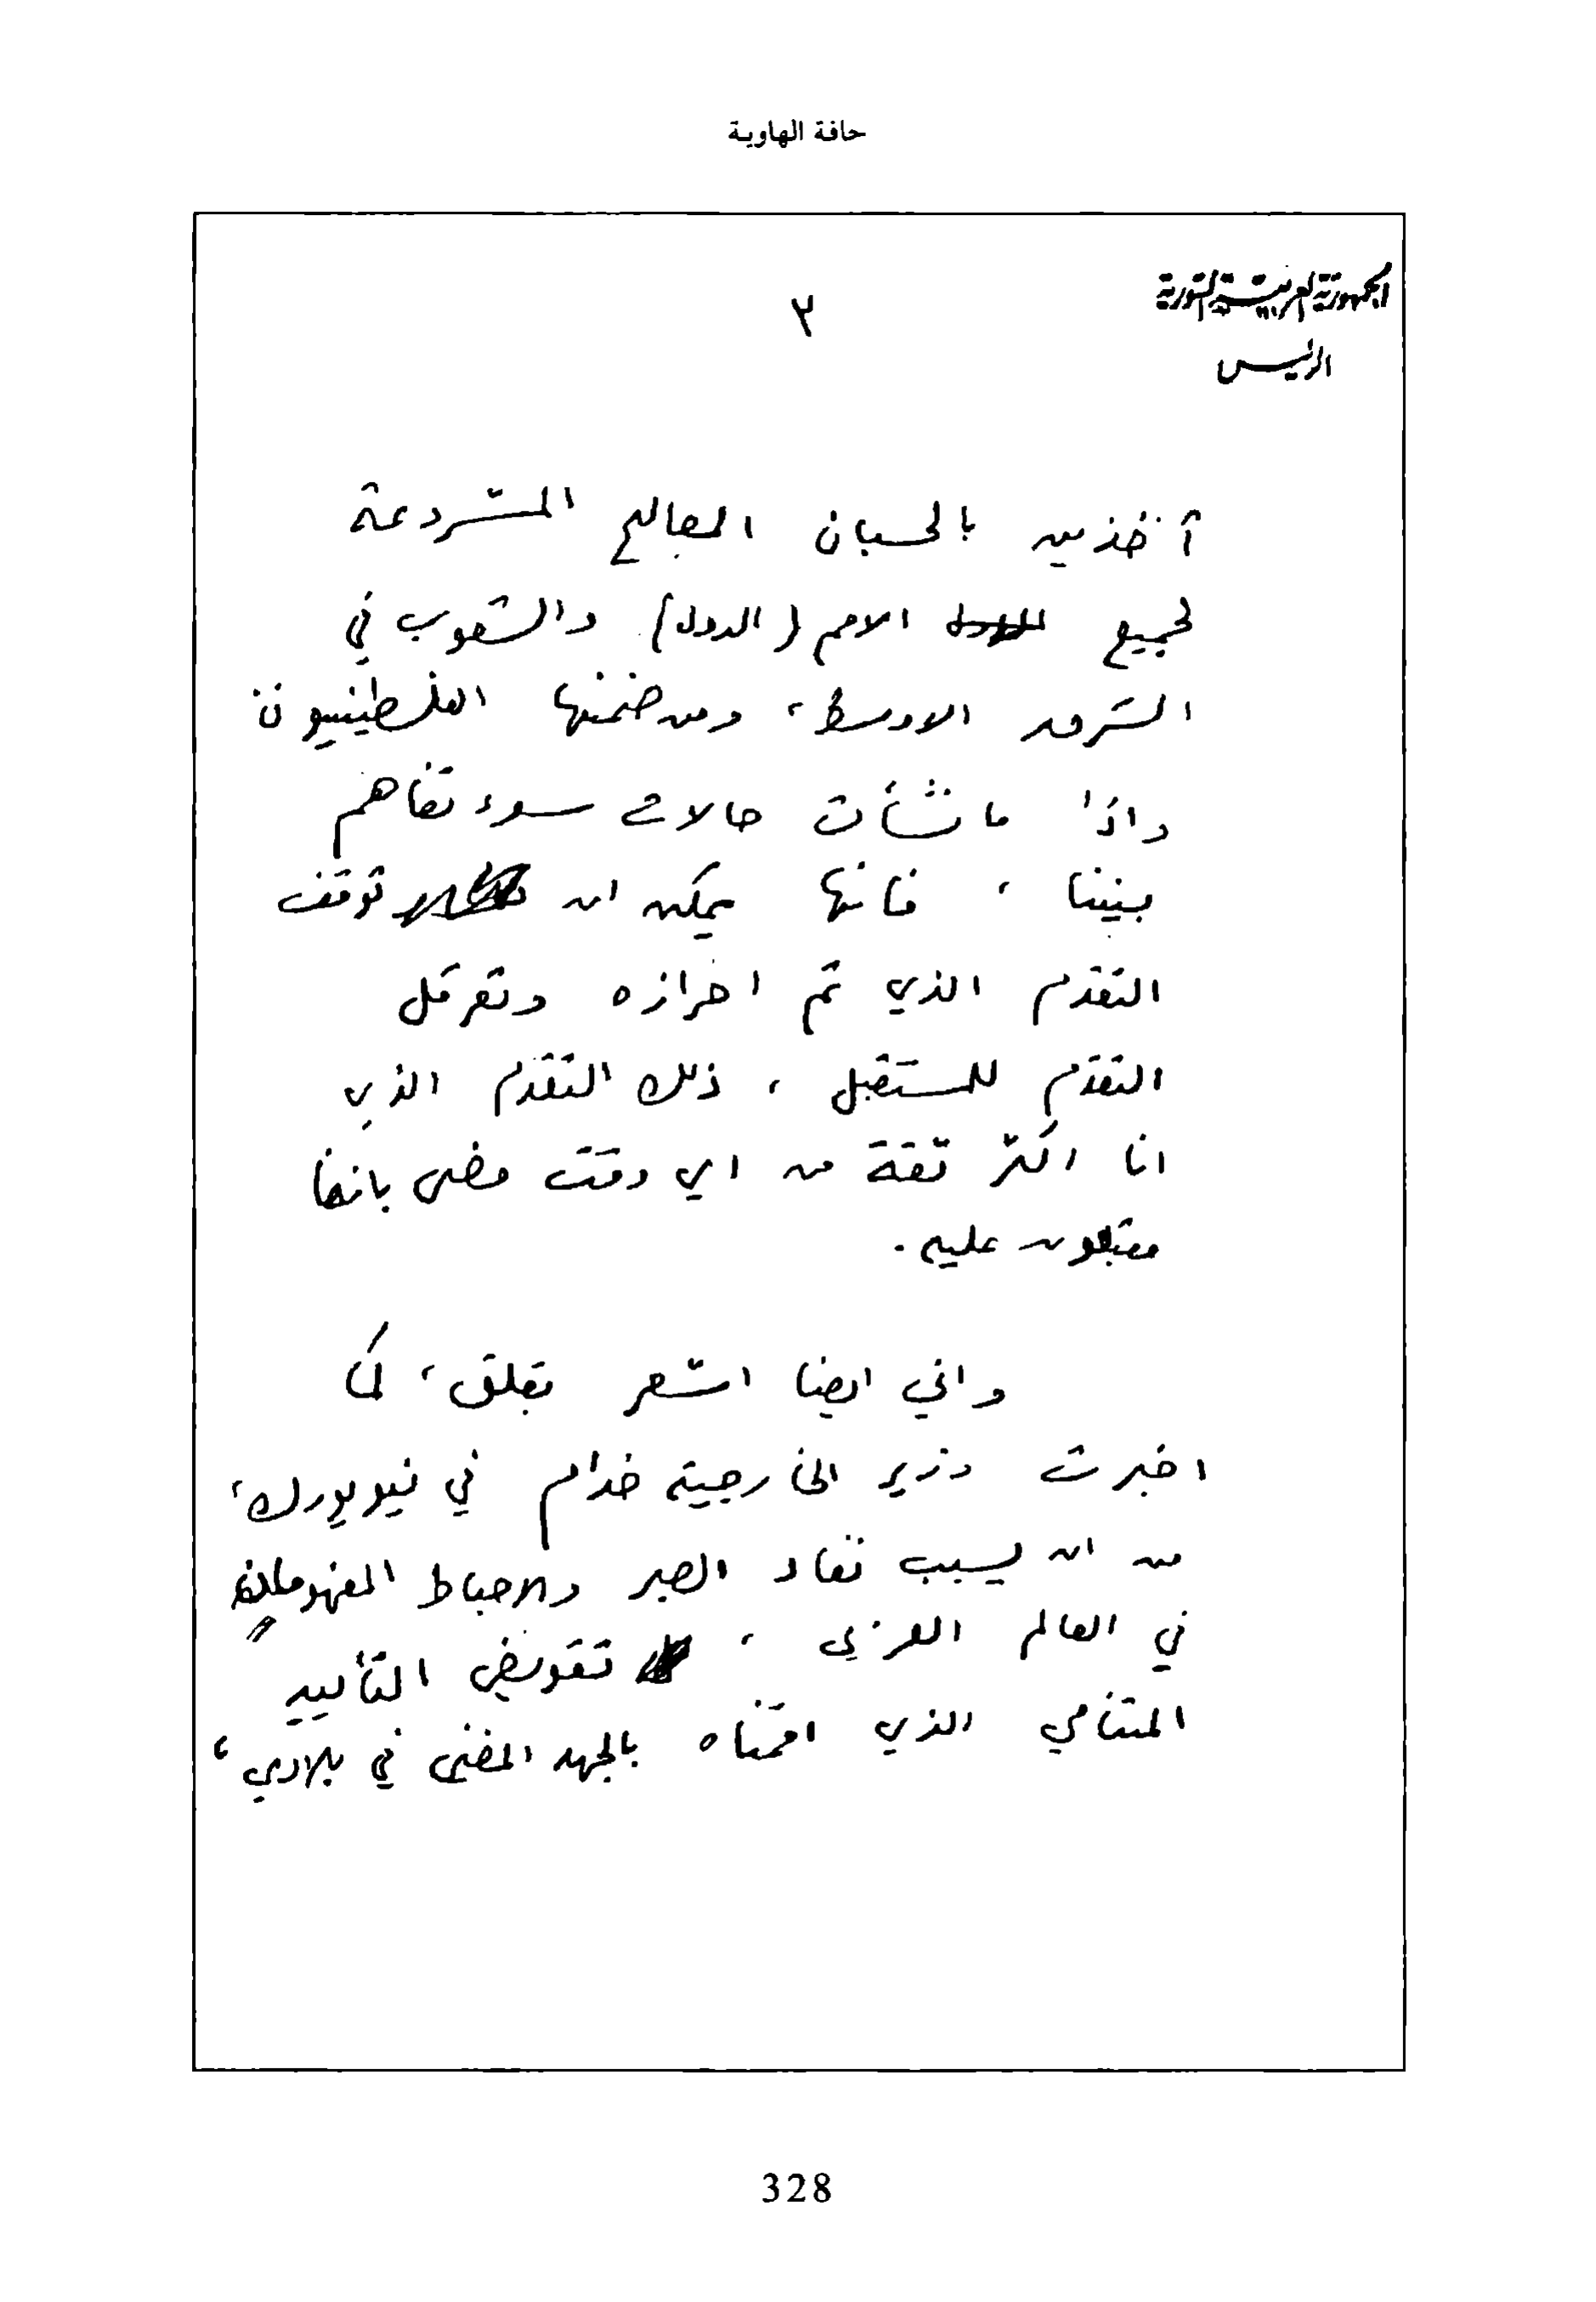 حافة الهاوية
الجمهورية العربية السورية
٢
الرئيس
آخذين بالحسبان المصالح المشروعة
لجميع الامم (الدول) والشعوب في
الشرق الاوسط، ومن ضمنها الفلسطينيون
واذا ما نشأت حالات سوء تفاهم
بيننا ، فانها يمكن ان توقف
التقدم الذي تم احرازه وتعرقل
التقدم للمستقبل ، ذلك التقدم الذي
انا اكثر ثقة من اي وقت مضى باننا
مقبلون عليه.
واني ايضا اشعر بقلق، كما
اخبرت وزير الخارجية خدام في نيويورك،
من ان يسبب نفاد الصبر والاحباط المفهومان
في العالم العربي ، تقويض التأييد
المتنامي الذي اقمناه بالجهد المضني في بلادي،
328